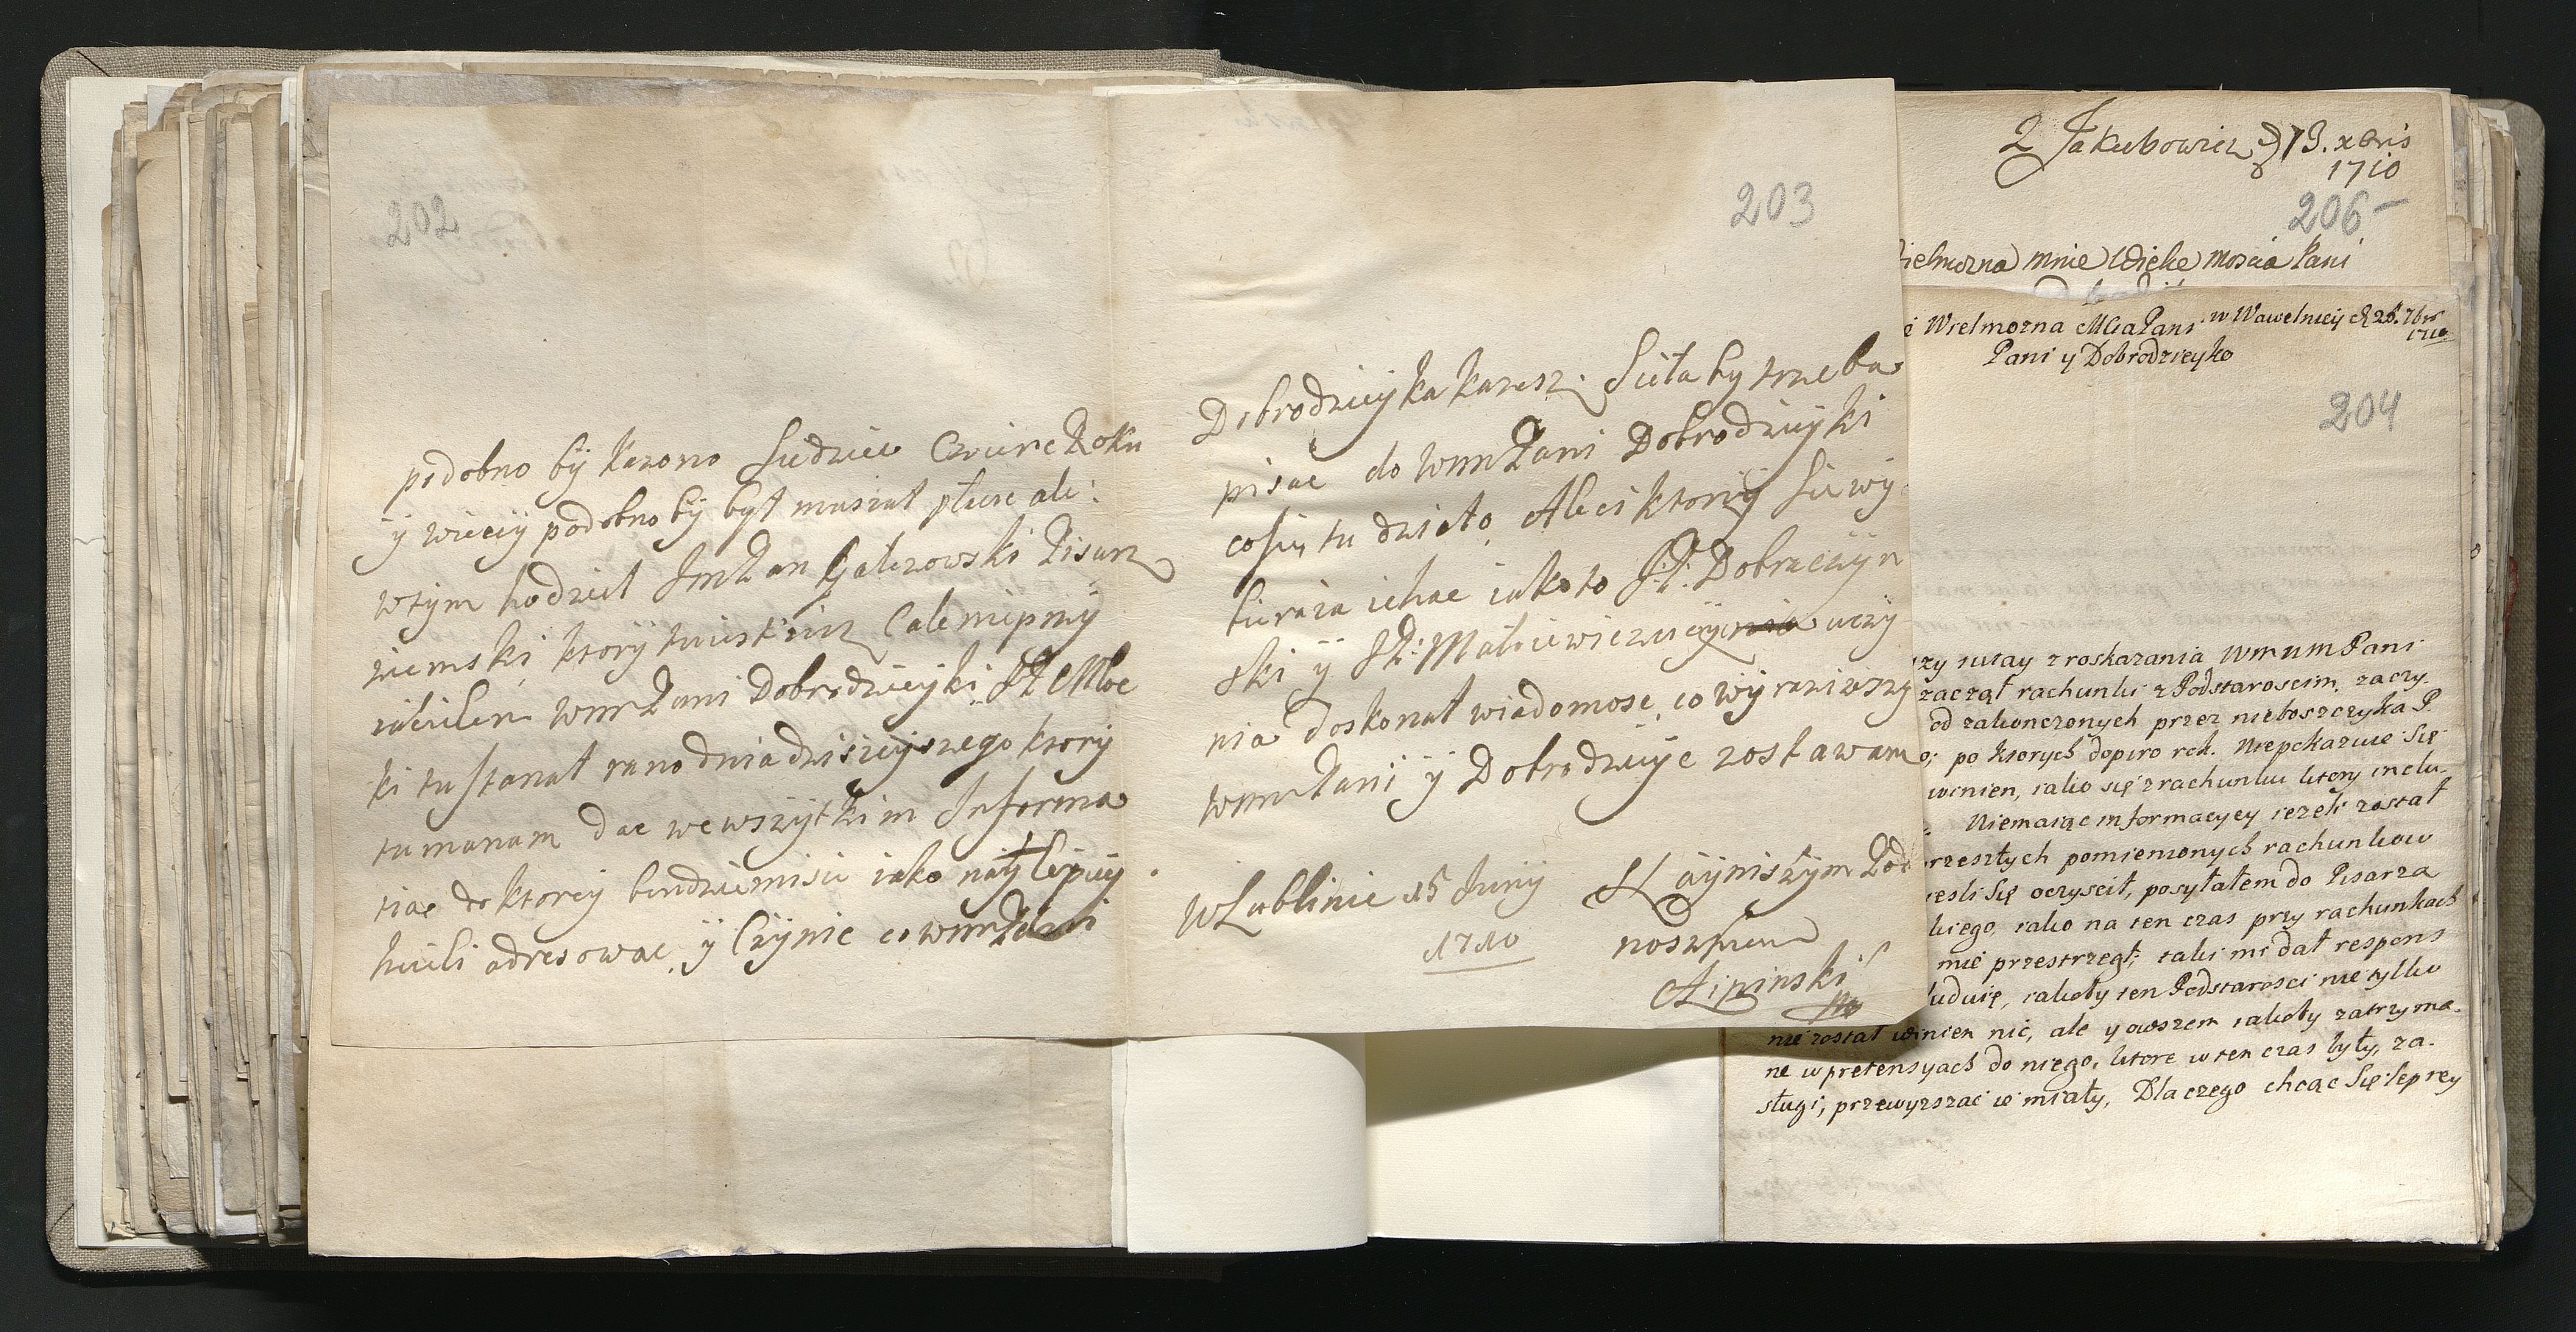 202
podobno by kazono siedziec Czwierc Roku
y wiecy podobno by był musiał płuse ale:
w tym hodziel Jm Pan Gałezowski Pisarz
ziemski ktory
iacielem wm Pani Dobrodzieyki JP Moc
ki tu stanał rano dnia dzisieyszego ktory
tu manam dac we wszytkim Informa
tiae do ktorey bendziemisie iako naylepiey
hcieli adresowac y Czynic co wm Pani
203
Dobrodzieyka kazesz. Siełaby trzeba
pisac do wm Pani Dobrodzieyki
co się tu dzieło Ale ci ktorzy sie wy
bieraia iehac iako to JP: Dobraczyn
ski y JP: Matiewicz uczy
nia doskonał wiadomosc, co wyraziwszy
wm Panij y Dobrodzieyce zostawam
w Lublinie 15 Junij
1710
nayniszym Pod
noszkiem
Lipinski
mp
2 Jakubowicz 13. xbris
1710
206
ielmozna mnie Wielce moscia Pani
Wielmozna MCia Pani w Wawelnicy 28. 7br
1710
Pani y Dobrodzieyko
204
zy tutay z roskazania Wm um Pani
zaczął rachunki z Podstaroscim, zaczy
od zakonczonych przez nieboszczyka P.
o; po ktorych dopiro rok. Niepokazuie Się
winien, iako się z rachunku ktory inclu-
Niemaiąc informacyey iezeli został
rzeszłych pomienionych rachunkow
iesli Się oczyscił, posyłałem do Pisarza
kiego, iako na ten czas przy rachunkach
mie przestrzegł; taki mi dał respons
uduię, iakoby ten Podstarosci nie tylko
nie został winien nic, ale y owszem iakoby zatrzyma.
ne w pretensyach do niego, ktore w ten czas były, za.
sługi, przewyzszać ie miały, Dla czego chcąc Się lepiey